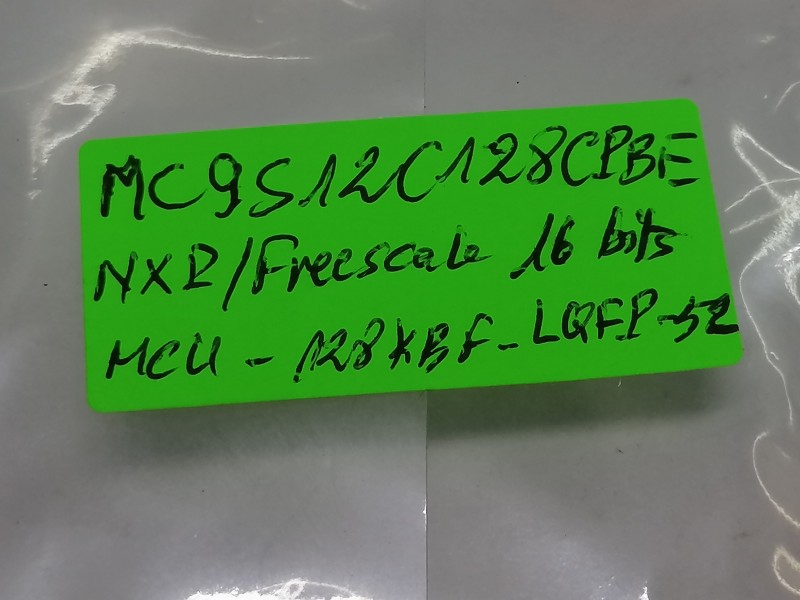 MC9S12C128CPBE
NXP/Freescale 16 bits
MCU - 128KBF - LQFP-52